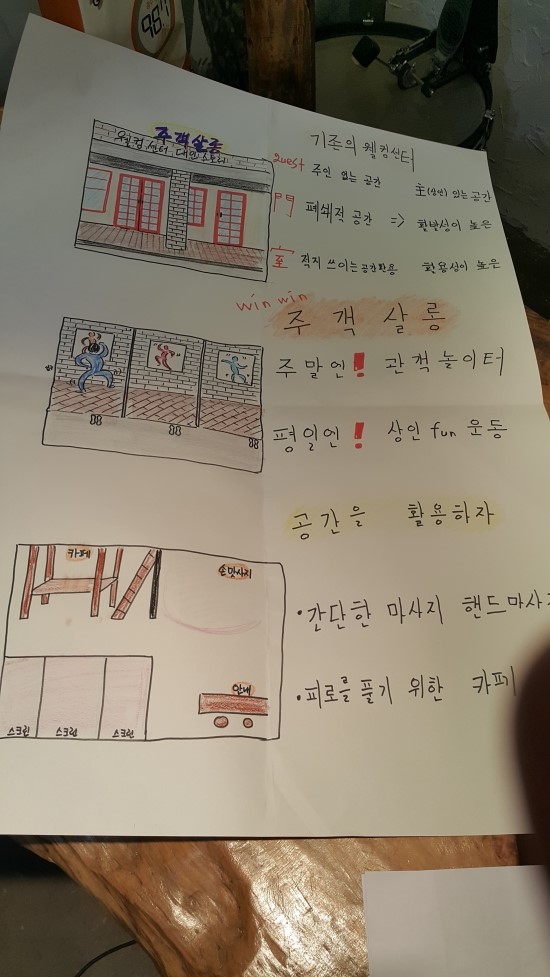 주객살롱
기존의 웰컴센터
Guest 주인 없는 공간 主(상인) 있는 공간
門 폐쇄적 공간 => 활발성이 높은
室 적지 쓰이는 공간활용 활용성이 높은
win win
주객살롱
주말엔! 관객놀이터
평일엔! 상인 fun 운동
공간을 활용하자
카페
손맛사지
안내
스크린 스크린 스크린
•간단한 마사지 핸드마사지
•피로를 풀기 위한 카페